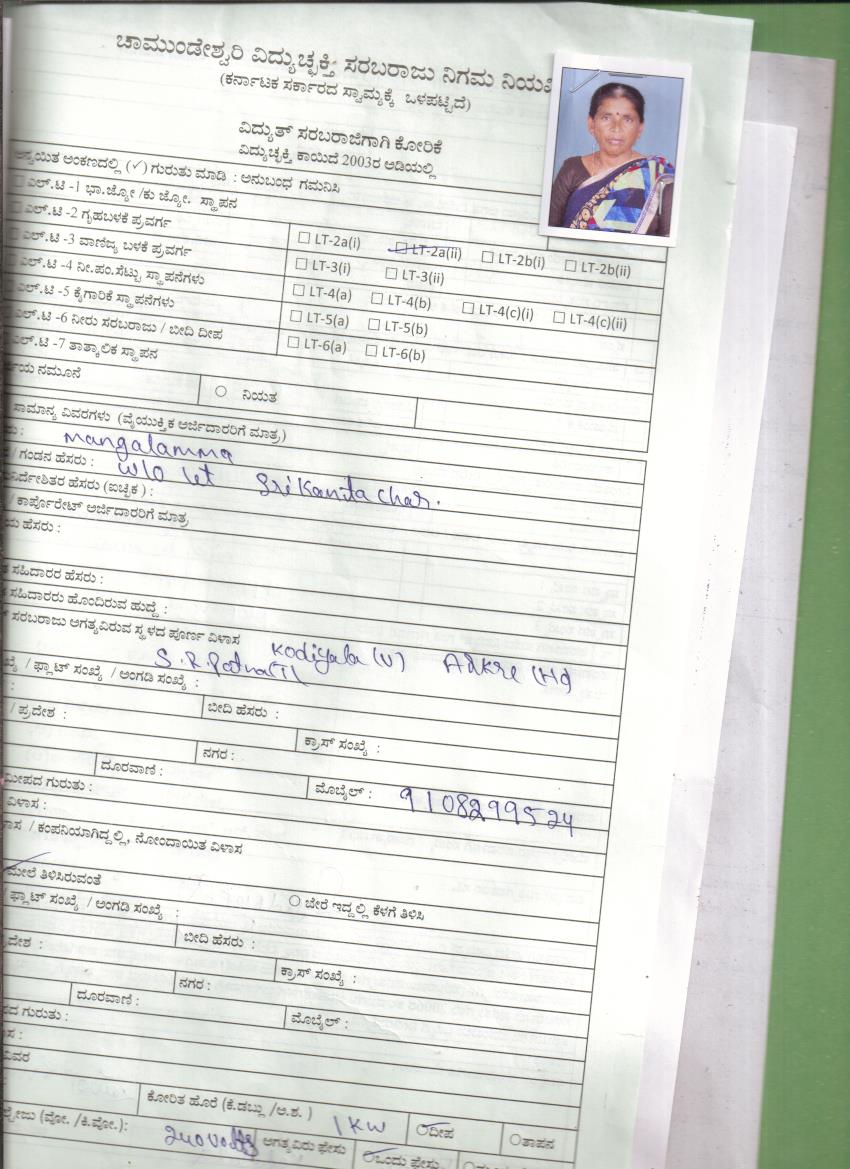 ಚಾಮುಂಡೇಶ್ವರಿ ವಿದ್ಯುಚ್ಛಕ್ತಿ ಸರಬರಾಜು ನಿಗಮ ನಿಯಮಿ
(ಕರ್ನಾಟಕ ಸರ್ಕಾರದ ಸ್ವಾಮ್ಯಕ್ಕೆ ಒಳಪಟ್ಟಿದೆ)
ವಿದ್ಯುತ್ ಸರಬರಾಜಿಗಾಗಿ ಕೋರಿಕೆ
ವಿದ್ಯುಚ್ಛಕ್ತಿ ಕಾಯಿದೆ 2003ರ ಅಡಿಯಲ್ಲಿ
ಅಂಕಣದಲ್ಲಿ (✓) ಗುರುತು ಮಾಡಿ : ಅನುಬಂಧ ಗಮನಿಸಿ
ಎಲ್.ಟಿ -1 ಭಾ.ಜ್ಯೋ /ಕು ಜ್ಯೋ. ಸ್ಥಾಪನ
ಎಲ್.ಟಿ -2 ಗೃಹಬಳಕೆ ಪ್ರವರ್ಗ ☐ LT-2a(i) ☐ LT-2a(ii) ☐ LT-2b(i) ☐ LT-2b(ii)
ಎಲ್.ಟಿ -3 ವಾಣಿಜ್ಯ ಬಳಕೆ ಪ್ರವರ್ಗ ☐ LT-3(i) ☐ LT-3(ii)
ಎಲ್.ಟಿ -4 ನೀ.ಪಂ.ಸೆಟ್ಟು ಸ್ಥಾಪನೆಗಳು ☐ LT-4(a) ☐ LT-4(b) ☐ LT-4(c)(i) ☐ LT-4(c)(ii)
ಎಲ್.ಟಿ -5 ಕೈಗಾರಿಕೆ ಸ್ಥಾಪನೆಗಳು ☐ LT-5(a) ☐ LT-5(b)
ಎಲ್.ಟಿ -6 ನೀರು ಸರಬರಾಜು / ಬೀದಿ ದೀಪ ☐ LT-6(a) ☐ LT-6(b)
ಎಲ್.ಟಿ -7 ತಾತ್ಕಾಲಿಕ ಸ್ಥಾಪನ
ನಮೂನೆ ○ ನಿಯತ
ಸಾಮಾನ್ಯ ವಿವರಗಳು (ವೈಯುಕ್ತಿಕ ಅರ್ಜಿದಾರರಿಗೆ ಮಾತ್ರ)
: Mangalamma
/ ಗಂಡನ ಹೆಸರು : W/O let Srikanta char.
ಹೆಸರು (ಐಚ್ಛಿಕ) :
/ ಕಾರ್ಪೊರೇಟ್ ಅರ್ಜಿದಾರರಿಗೆ ಮಾತ್ರ
ಯ ಹೆಸರು :
ಸಹಿದಾರರ ಹೆಸರು :
ಸಹಿದಾರರು ಹೊಂದಿರುವ ಹುದ್ದೆ :
ಸರಬರಾಜು ಅಗತ್ಯವಿರುವ ಸ್ಥಳದ ಪೂರ್ಣ ವಿಳಾಸ Kodiyala (V) Arkre (H)
/ ಫ್ಲಾಟ್ ಸಂಖ್ಯೆ / ಅಂಗಡಿ ಸಂಖ್ಯೆ : S.R.Patna(T)
: ಬೀದಿ ಹೆಸರು :
/ ಪ್ರದೇಶ : ಕ್ರಾಸ್ ಸಂಖ್ಯೆ :
ನಗರ :
ದೂರವಾಣಿ : ಮೊಬೈಲ್ : 9108299524
ಮೀಪದ ಗುರುತು :
ವಿಳಾಸ :
ಾಸ / ಕಂಪನಿಯಾಗಿದ್ದಲ್ಲಿ, ನೋಂದಾಯಿತ ವಿಳಾಸ
ಮೇಲೆ ತಿಳಿಸಿರುವಂತೆ ○ ಬೇರೆ ಇದ್ದಲ್ಲಿ ಕೆಳಗೆ ತಿಳಿಸಿ
/ ಫ್ಲಾಟ್ ಸಂಖ್ಯೆ / ಅಂಗಡಿ ಸಂಖ್ಯೆ :
ಬೀದಿ ಹೆಸರು :
ದೇಶ : ಕ್ರಾಸ್ ಸಂಖ್ಯೆ :
ನಗರ :
ದೂರವಾಣಿ : ಮೊಬೈಲ್ :
ಪದ ಗುರುತು :
ಾಸ :
ವಿವರ
: ಕೋರಿತ ಹೊರೆ (ಕೆ.ಡಬ್ಲು /ಅ.ಶ. ) 1KW ○ದೀಪ ○ತಾಪನ
(ವೋ. /ಕಿ.ವೋ.): 240Volts ಅಗತ್ಯವಿರು ಫೇಸು ○ಒಂದು ಫೇಸು